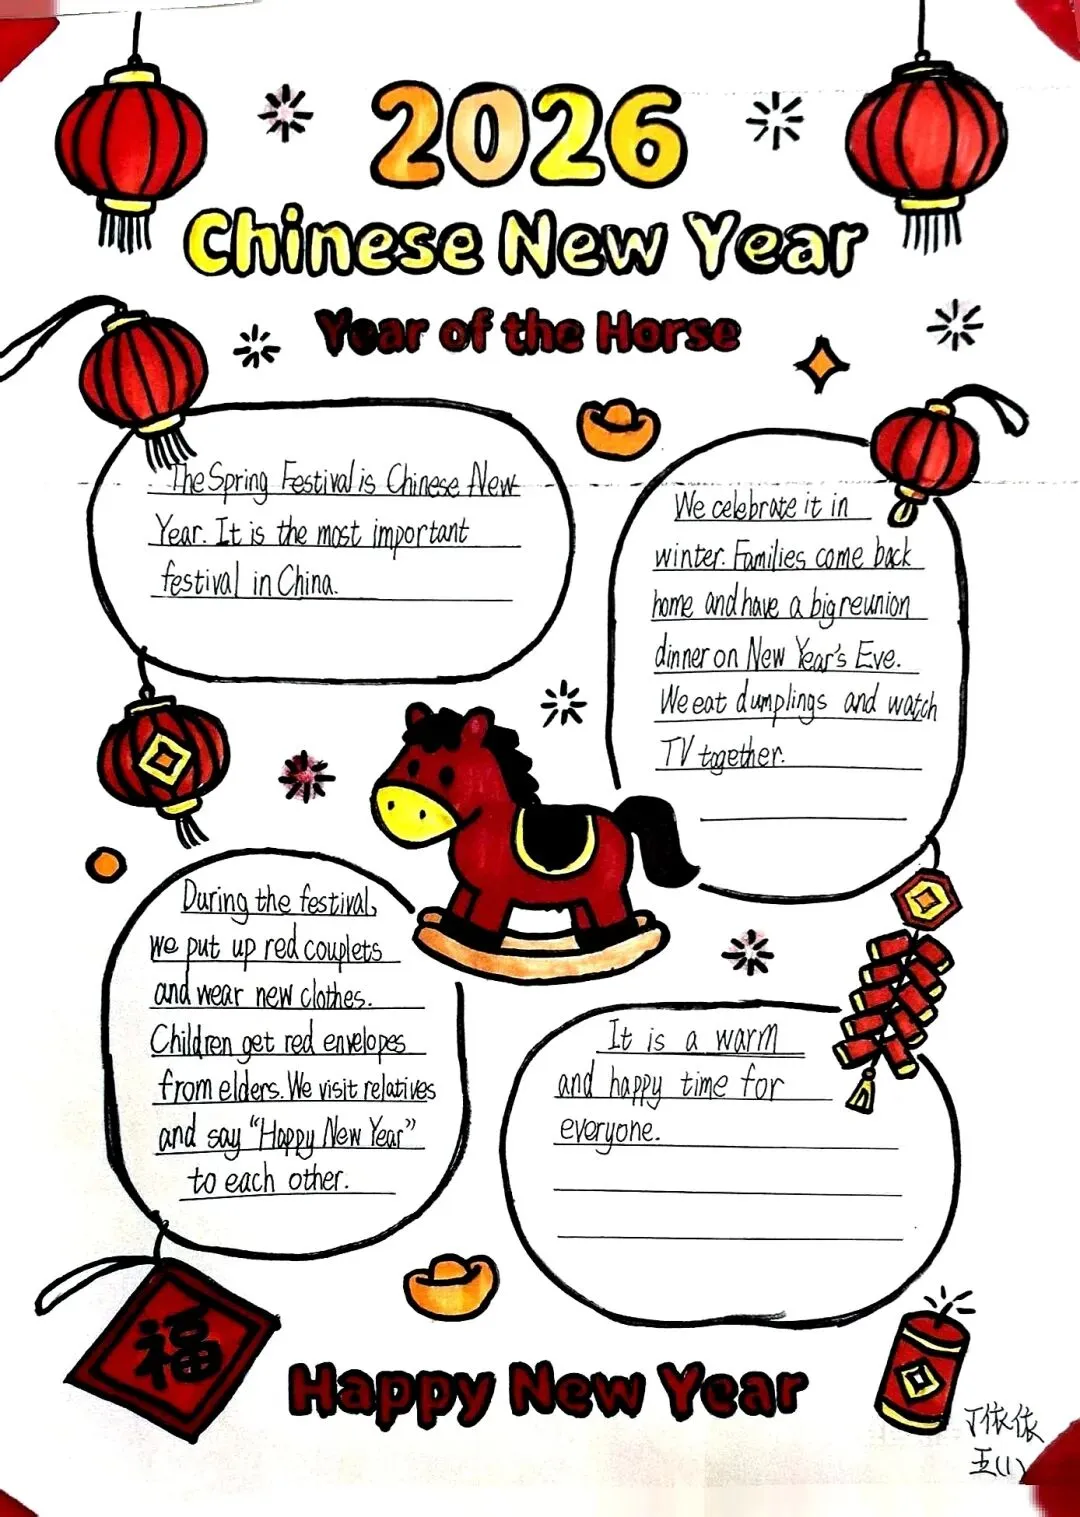 2026
Chinese New Year
Year of the Horse
The Spring Festival is Chinese New
Year. It is the most important
festival in China.
We celebrate it in
winter. Families come back
home and have a big reunion
dinner on New Year's Eve.
We eat dumplings and watch
TV together.
During the festival,
we put up red couplets
and wear new clothes.
Children get red envelopes
from elders. We visit relatives
and say “Happy New Year”
to each other.
It is a warm
and happy time for
everyone.
福
Happy New Year
丁依依
五(1)